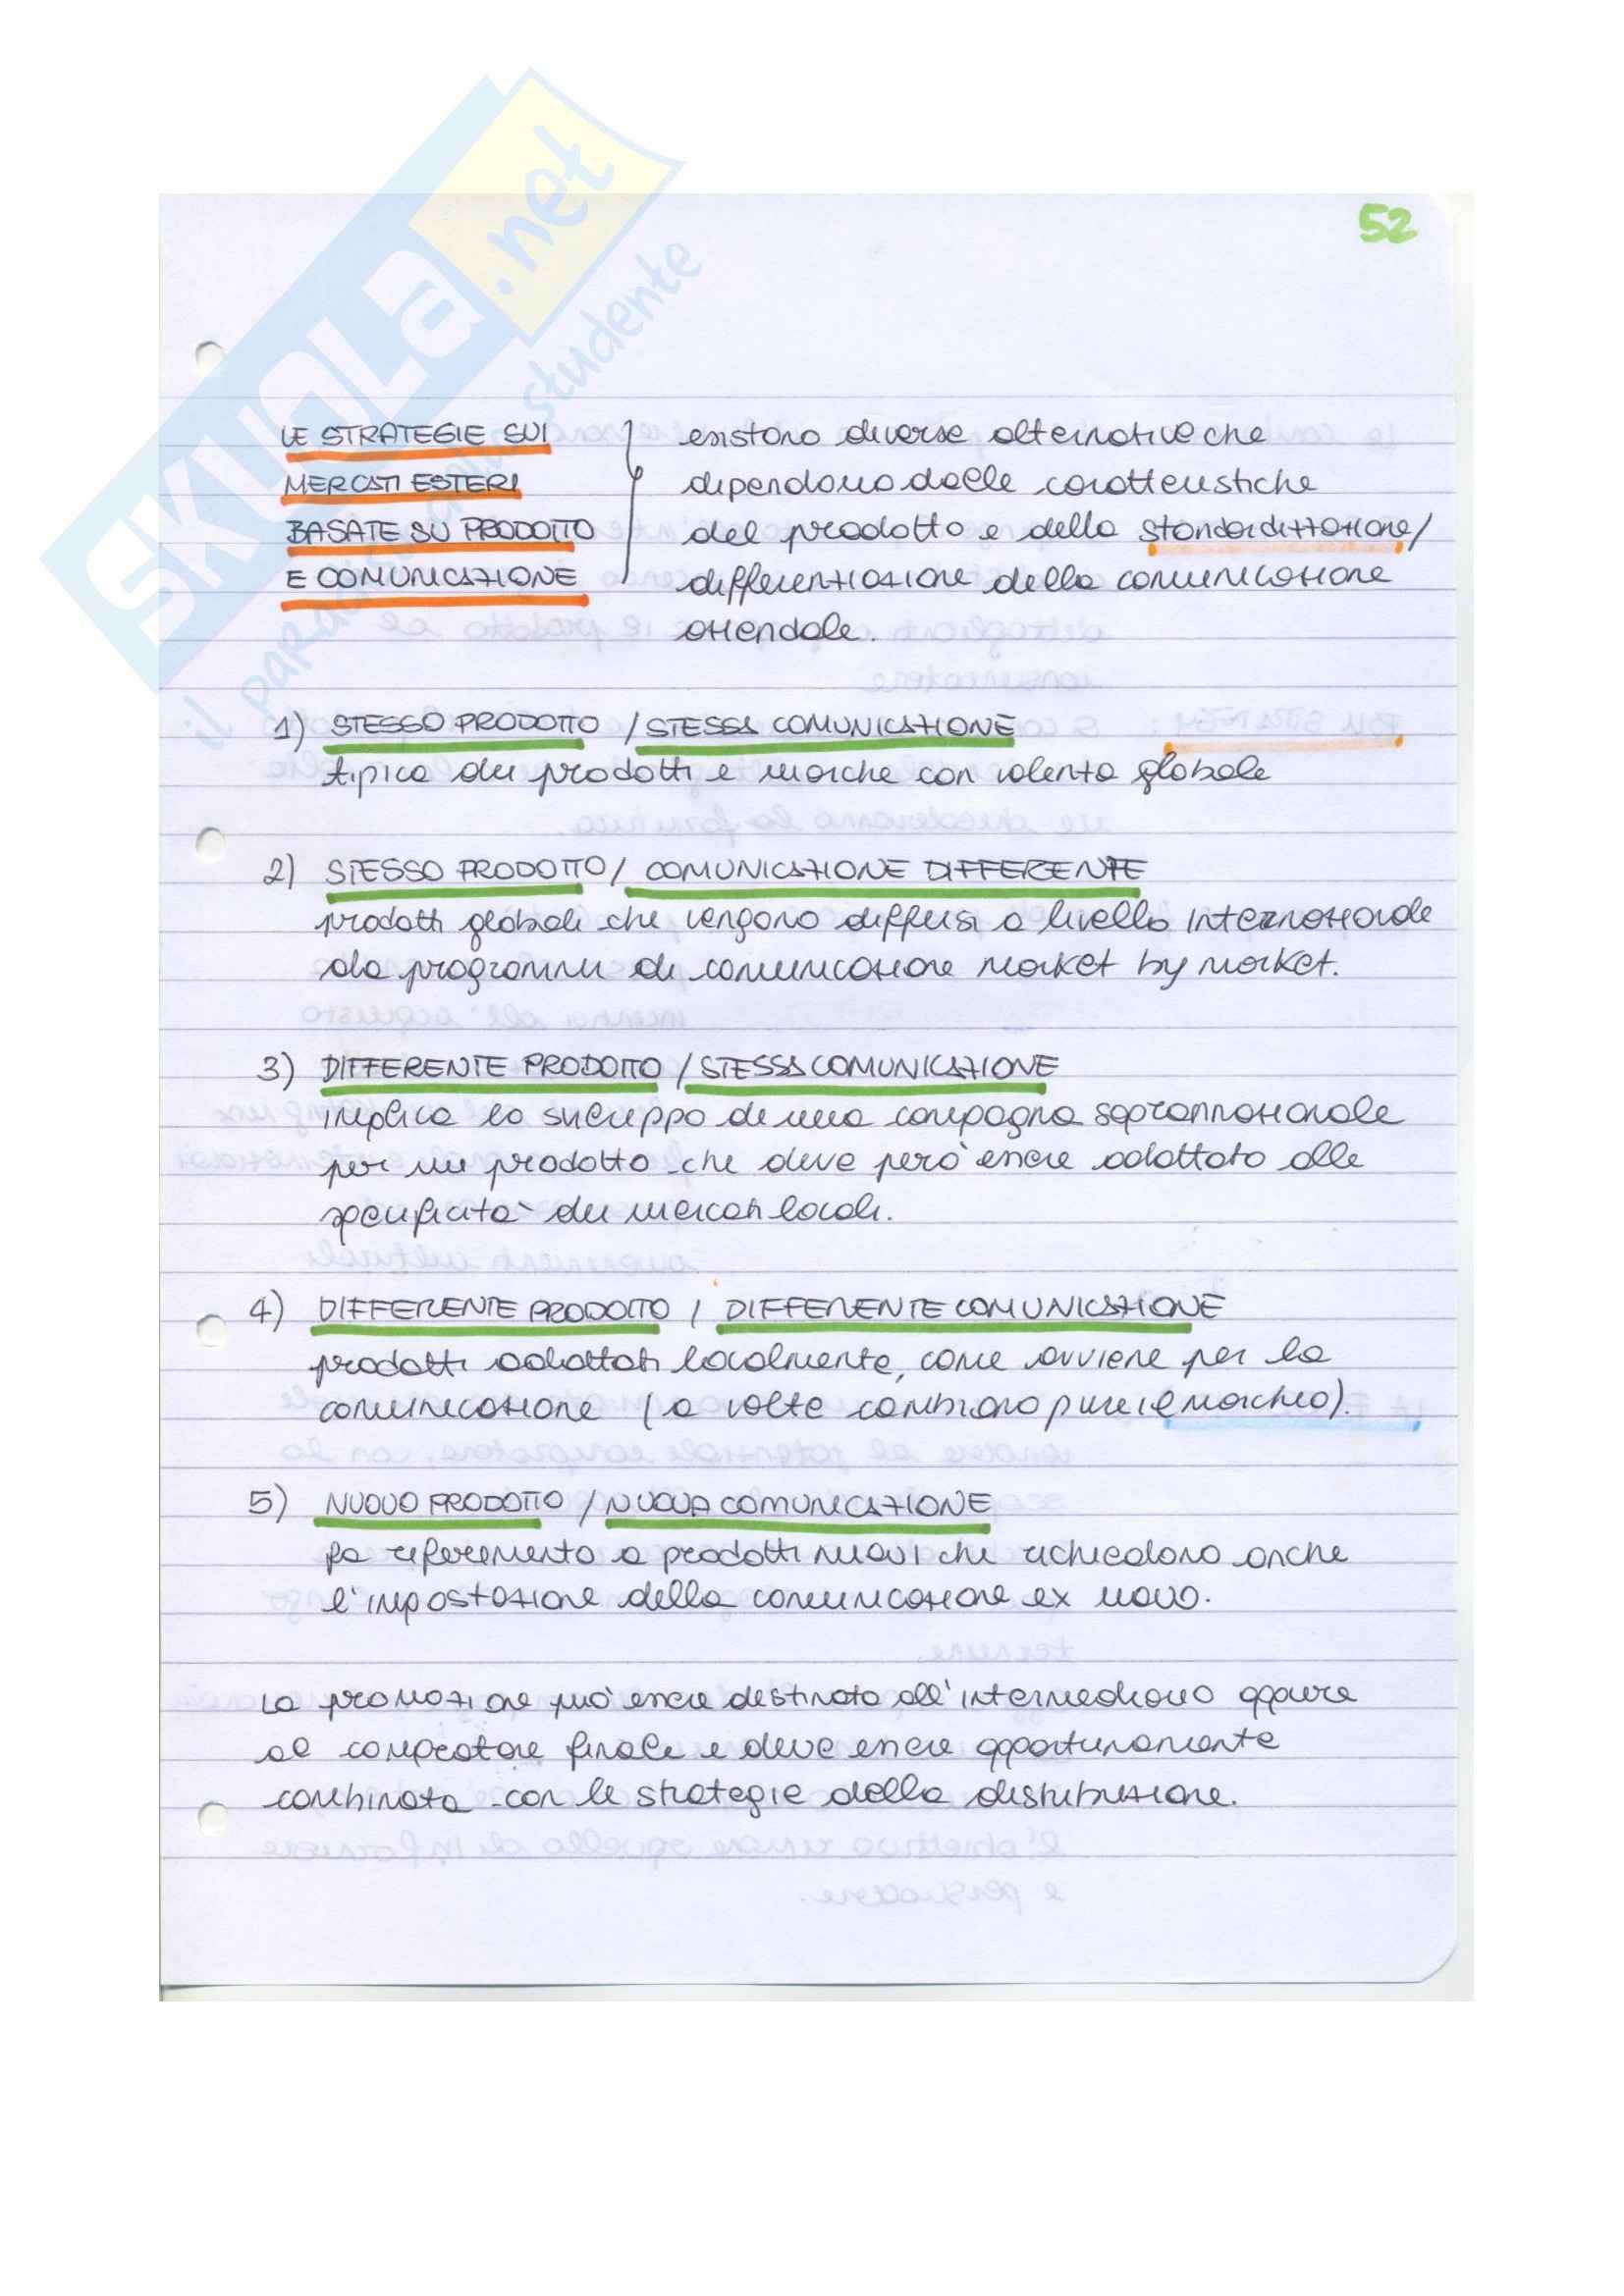 52
LE STRATEGIE SUI
MERCATI ESTERI
BASATE SU PRODOTTO
E COMUNICAZIONE
esistono diverse alternative che
dipendono dalle caratteristiche
del prodotto e della standardizzazione/
differenziazione della comunicazione
aziendale.
1) STESSO PRODOTTO / STESSA COMUNICAZIONE
tipica dei prodotti e marche con valenza globale
2) STESSO PRODOTTO / COMUNICAZIONE DIFFERENTE
prodotti globali che vengono diffusi a livello internazionale
da programmi di comunicazione market by market.
3) DIFFERENTE PRODOTTO / STESSA COMUNICAZIONE
implica lo sviluppo di una campagna soprannazionale
per un prodotto che deve però essere adattato alle
specificità dei mercati locali.
4) DIFFERENTE PRODOTTO / DIFFERENTE COMUNICAZIONE
prodotti adattati localmente, come avviene per la
comunicazione (a volte cambiano pure il marchio).
5) NUOVO PRODOTTO / NUOVA COMUNICAZIONE
fa riferimento a prodotti nuovi che richiedono anche
l'impostazione della comunicazione ex novo.
La promozione può essere destinata all'intermediario oppure
al compratore finale e deve essere opportunamente
combinata con le strategie della distribuzione.
SKUOLA.net
il paradiso dello studente